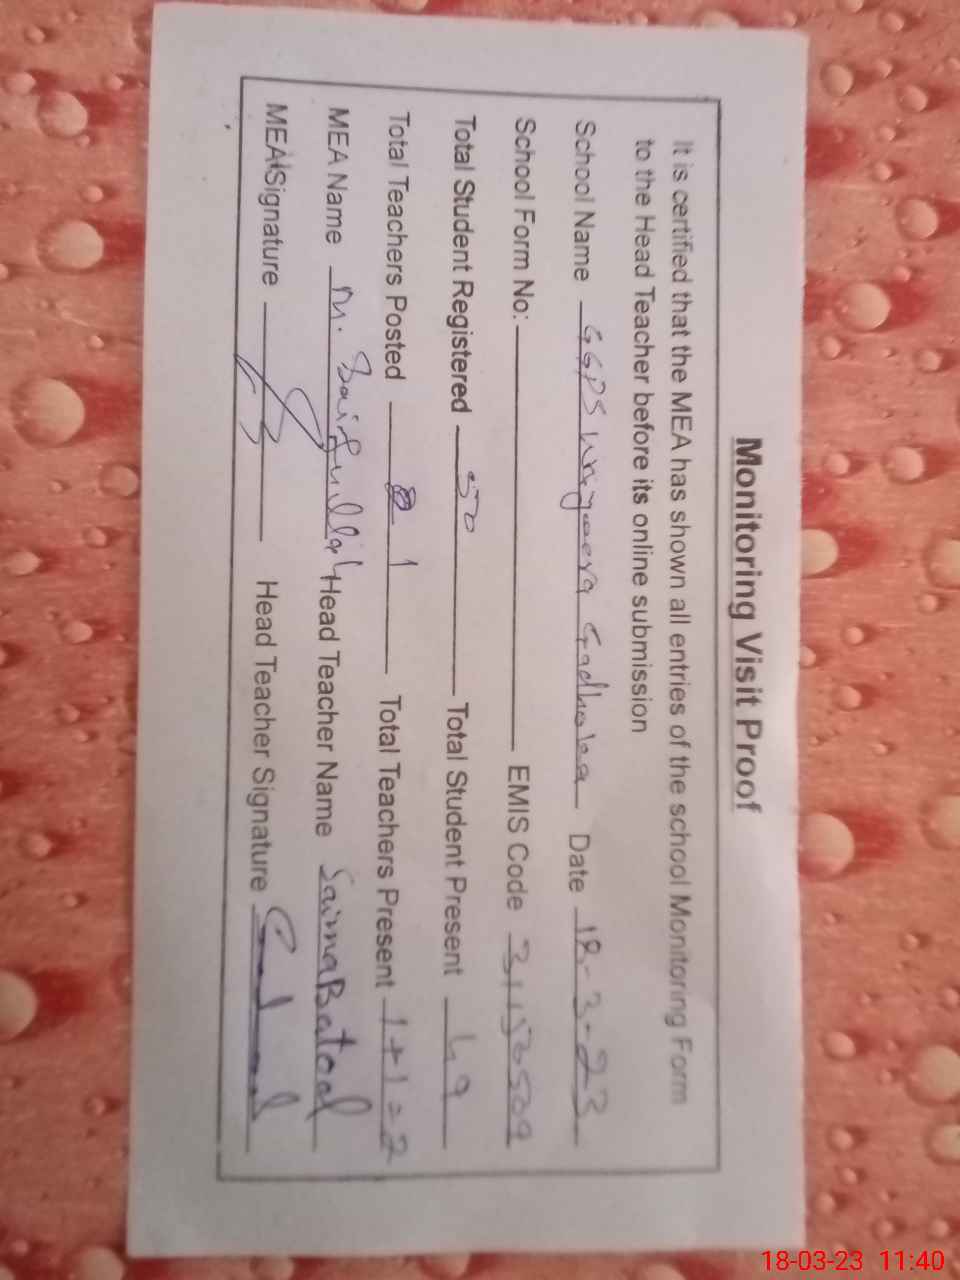 Monitoring Visit Proof
It is certified that the MEA has shown all entries of the school Monitoring Form
to the Head Teacher before its online submission
School Name GGPS Date 18-3-23
School Form No: EMIS Code
Total Student Registered 50 Total Student Present 49
Total Teachers Posted 1 Total Teachers Present 1+1=2
MEA Name M. Saifullah Head Teacher Name Saima Batool
MEA Signature Head Teacher Signature
18-03-23 11:40